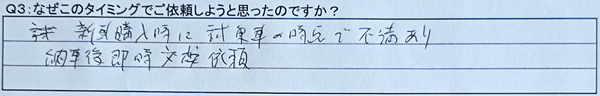 Q3:なぜこのタイミングでご依頼しようと思ったのですか?
新車購入時に試乗車の時点で不満あり
納車後即時交換依頼